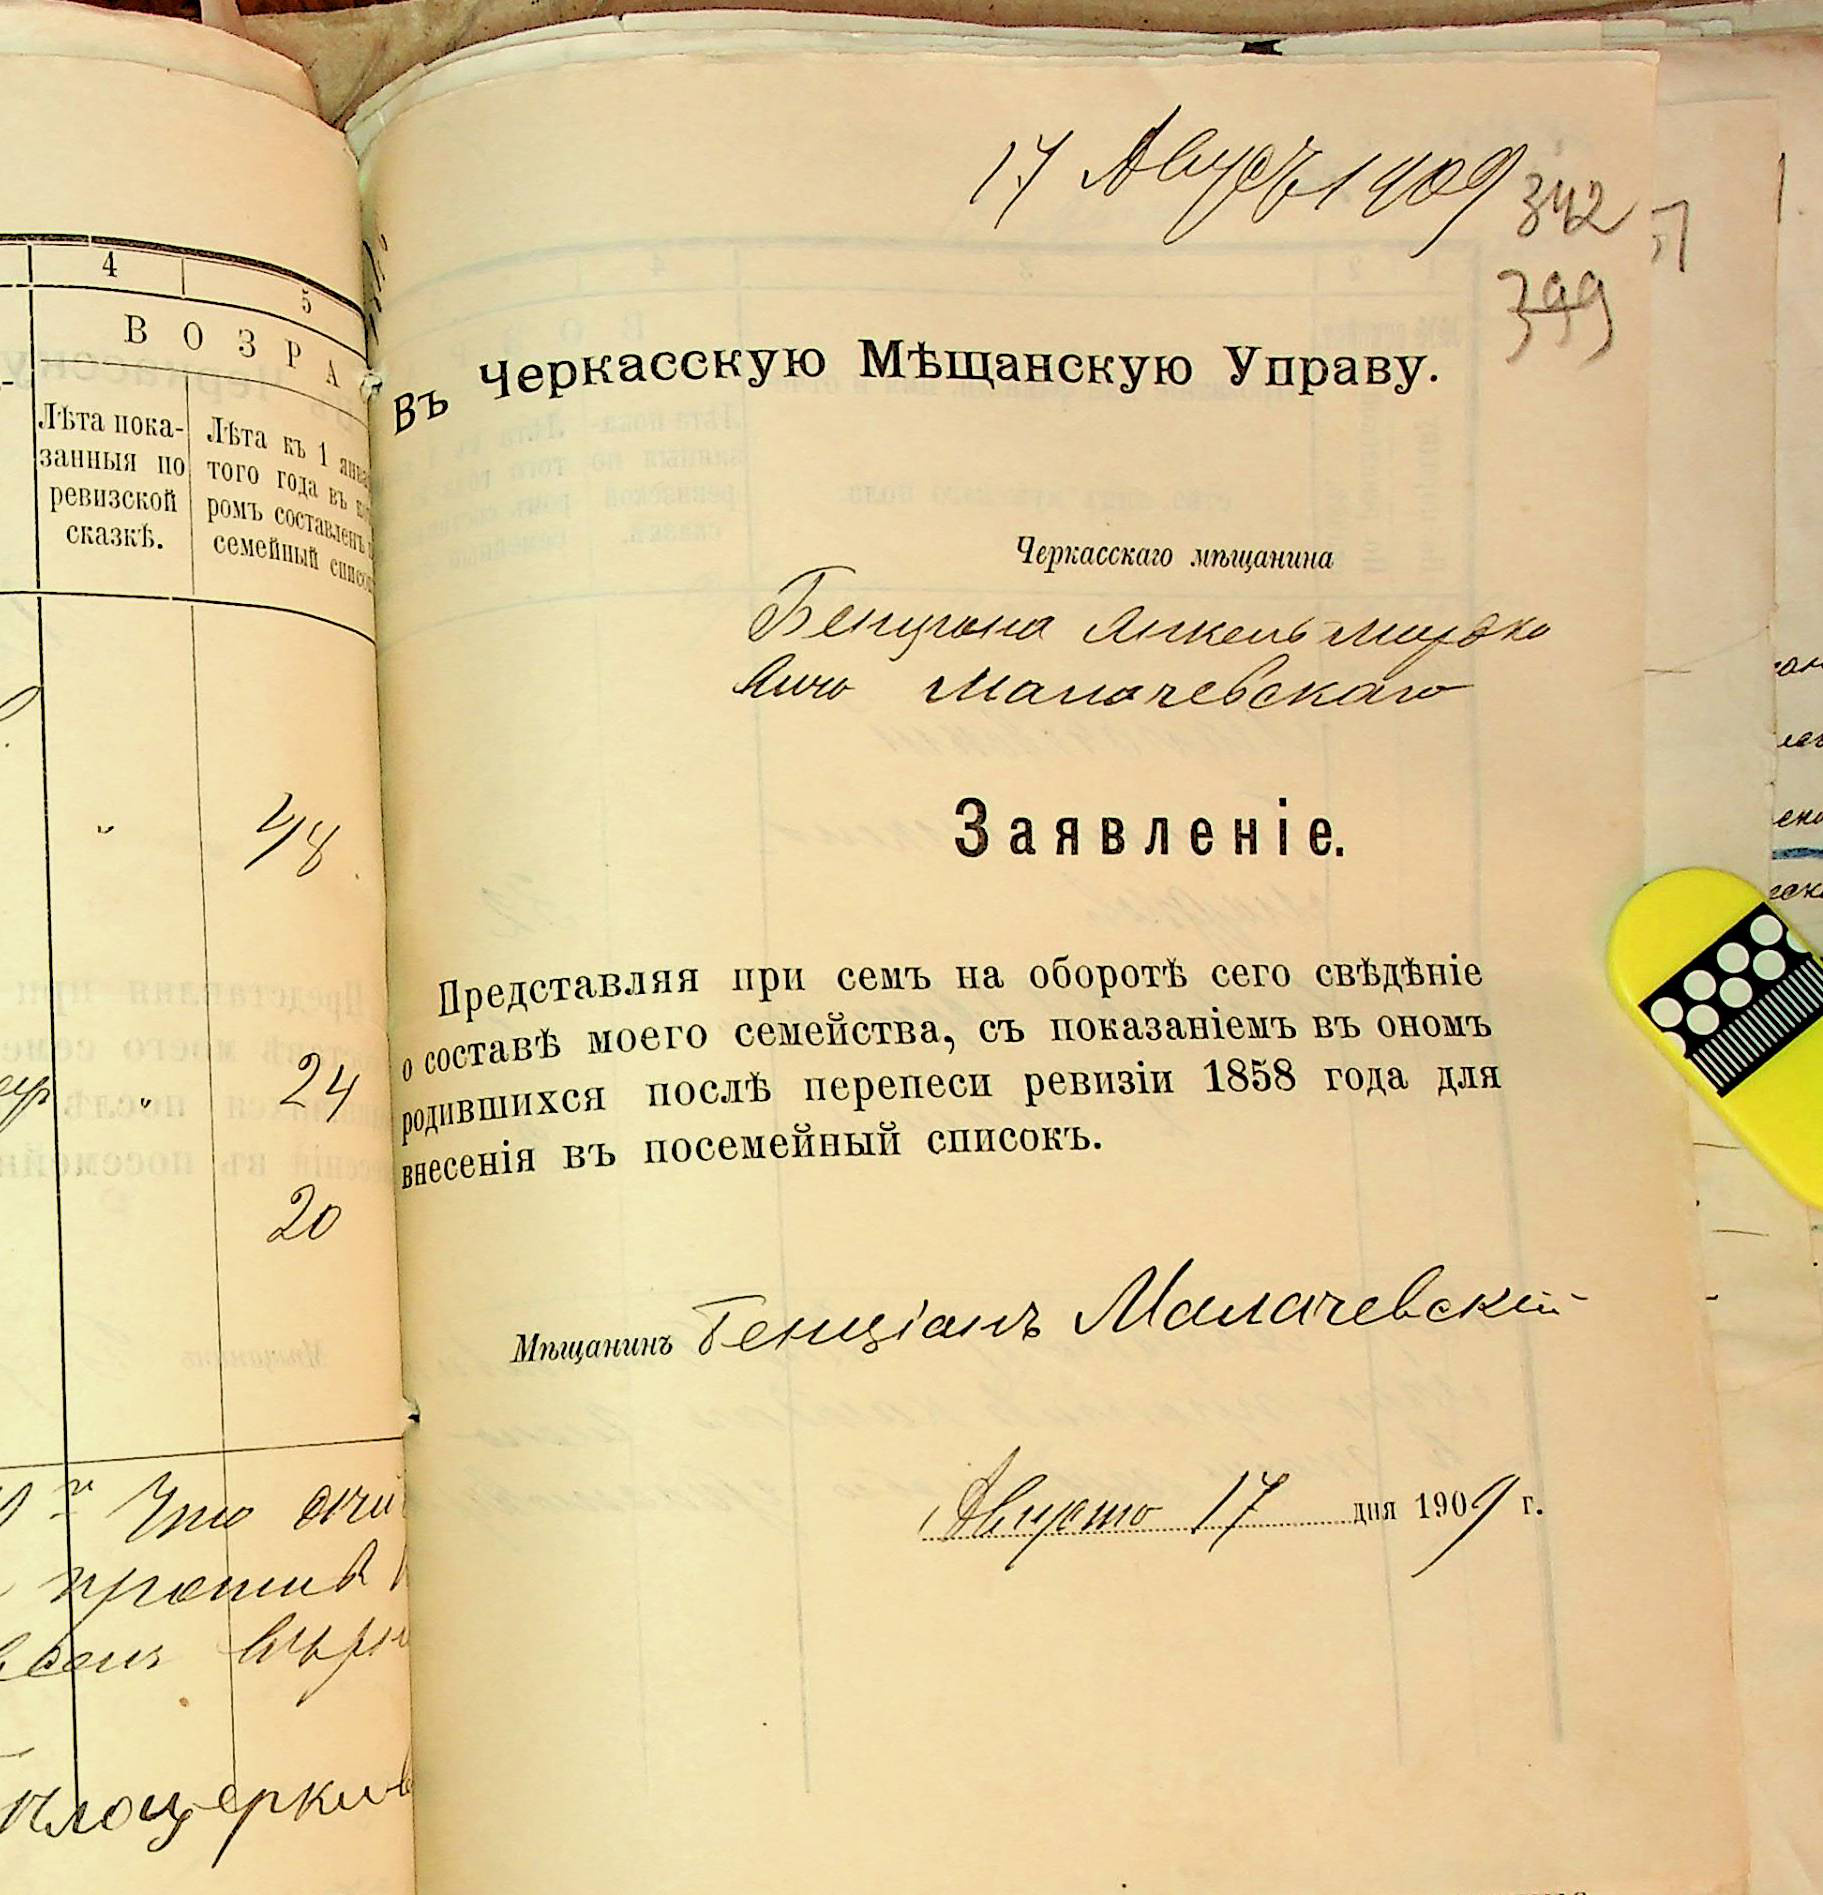 4
5
ВОЗРА
Лѣта пока-
занныя по
ревизской
сказкѣ.
Лѣта къ 1 янва
того года въ ко
ромъ составленъ
семейный списо
48
24
20
что
против
17 Августъ 1909
342
399
Въ Черкасскую Мѣщанскую Управу.
Черкасскаго мѣщанина
Бенциона Янкель Мордко
вича Малачевскаго
Заявленіе.
Представляя при семъ на оборотѣ сего свѣдѣніе
о составѣ моего семейства, съ показаніемъ въ ономъ
родившихся послѣ перепеси ревизіи 1858 года для
внесенія въ посемейный списокъ.
Мѣщанинъ Бенціанъ Малачевскій
Августа 17 дня 1909 г.